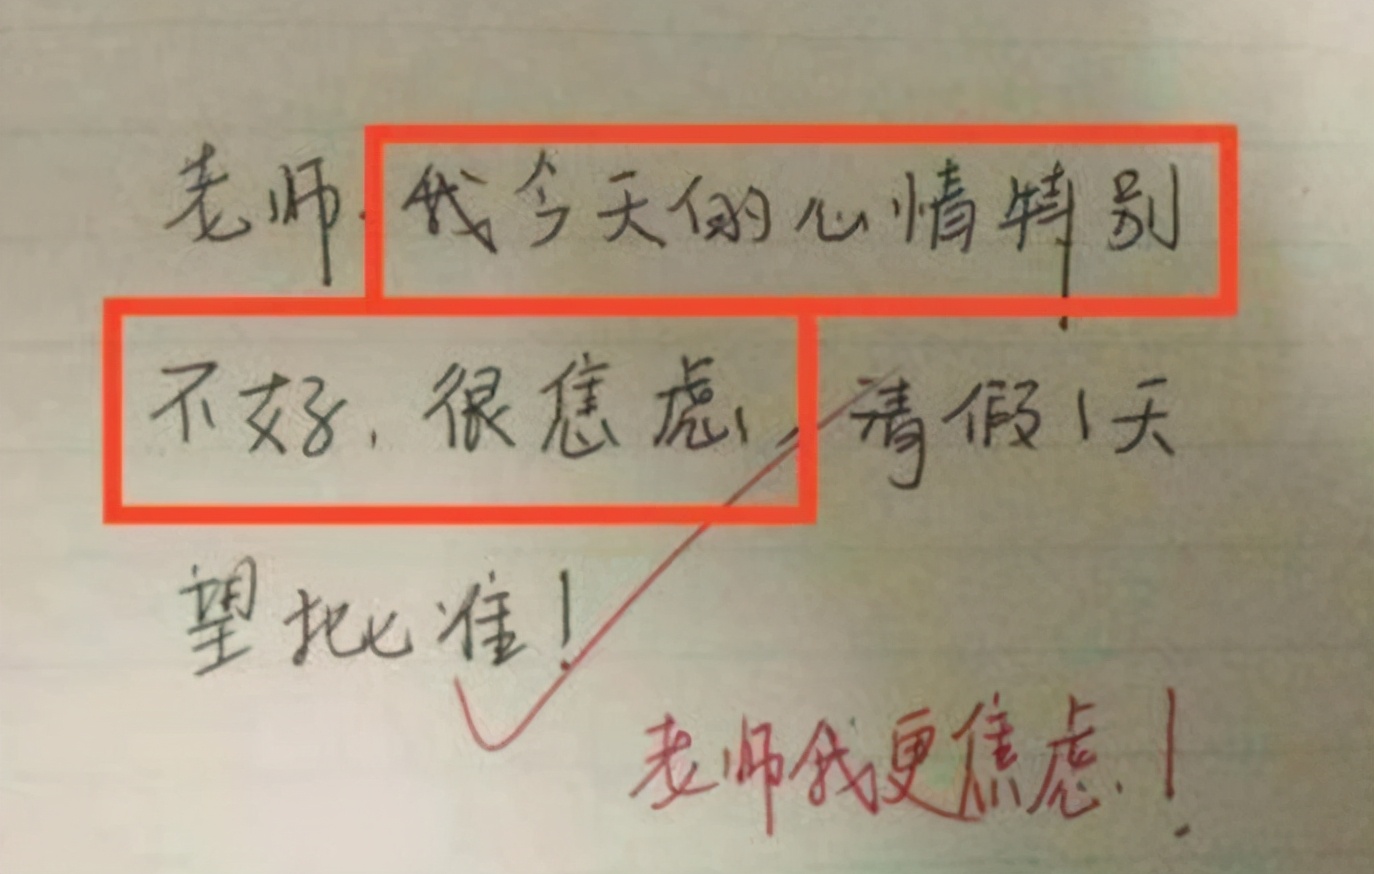 老师.我今天的心情特别
不好,很焦虑,请假1天
望批准!
老师我更焦虑!